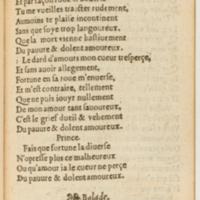 Tu me vueilles tracter rudement,
Aumoins te plaise incontinent
Sans que soye trop langoureux,
Que la mort vienne hastiuement
Du pauure & dolent amoureux.
Le dard d'amours mon cueur tresperçe,
Et sans auoir allegement,
Fortune en sa roue m'enuerse,
Et m'est contraire, tellement
Que ne puis iouyr nullement
De mon amour tant sauoureux,
C'est le grief dueil & vehement
Du pauure & dolent amoureux.
Prince.
Fais que fortune la diuerse
N'opresse plus ce malheureux
Ou qu'amour ia le cueur ne perçe
Du pauure & dolent amoureux.
Balade.